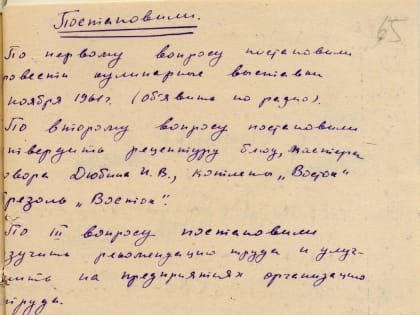 65
Постановили.
По первому вопросу постановили
ровести кулинарные выставки
ноября 1961г. (об'явить по радио).
По второму вопросу постановили
твердить рецептуру блюд, мастера
овара Дюбина И.В., котлеты „Восток"
резоль „Восток".
По III вопросу постановили
зучить рекомендацию труда и улуч-
шить на предприятиях организацию
труда.